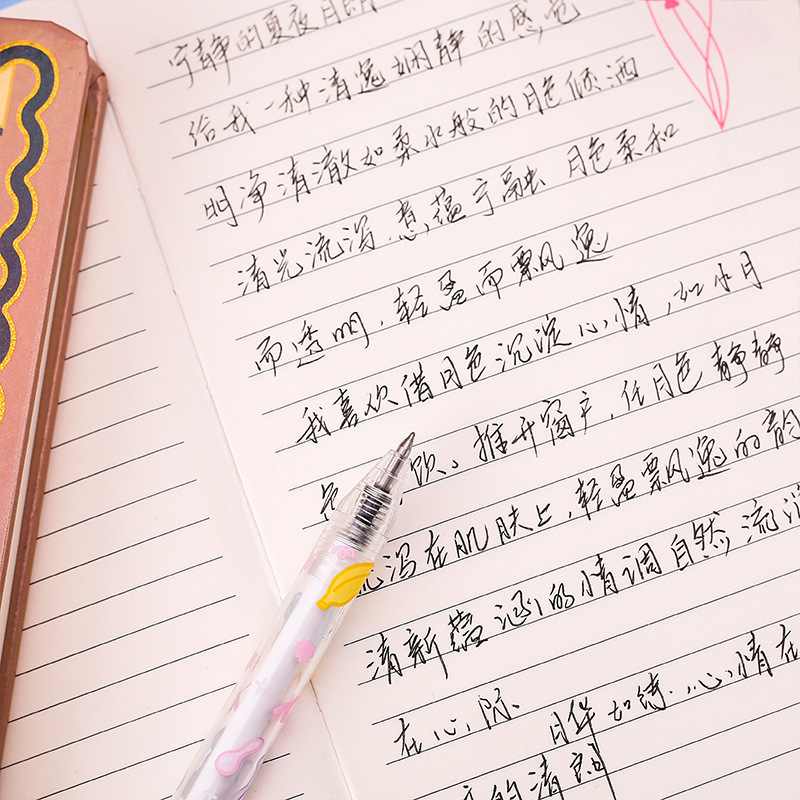 宁静的夏夜月明
给我一种清逸娴静的感觉
明净清澈如柔水般的月色倾洒
清光流泻,意蕴宁融 月色柔和
而透明,轻盈而飘逸
我喜欢借月色沉淀心情,如水月
色 饮。推开窗户,任月色静静
流泻在肌肤上,轻盈飘逸的韵
清新蕴涵的情调自然流淌
在心际
月华如练.心情在
的清朗